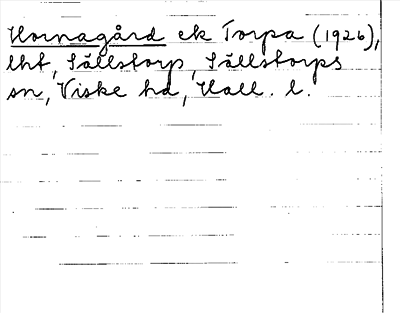 Hornagård ek Torpa (1926),
lht, Sällstorp, Sällstorps
sn, Viske hd, Hall. l.